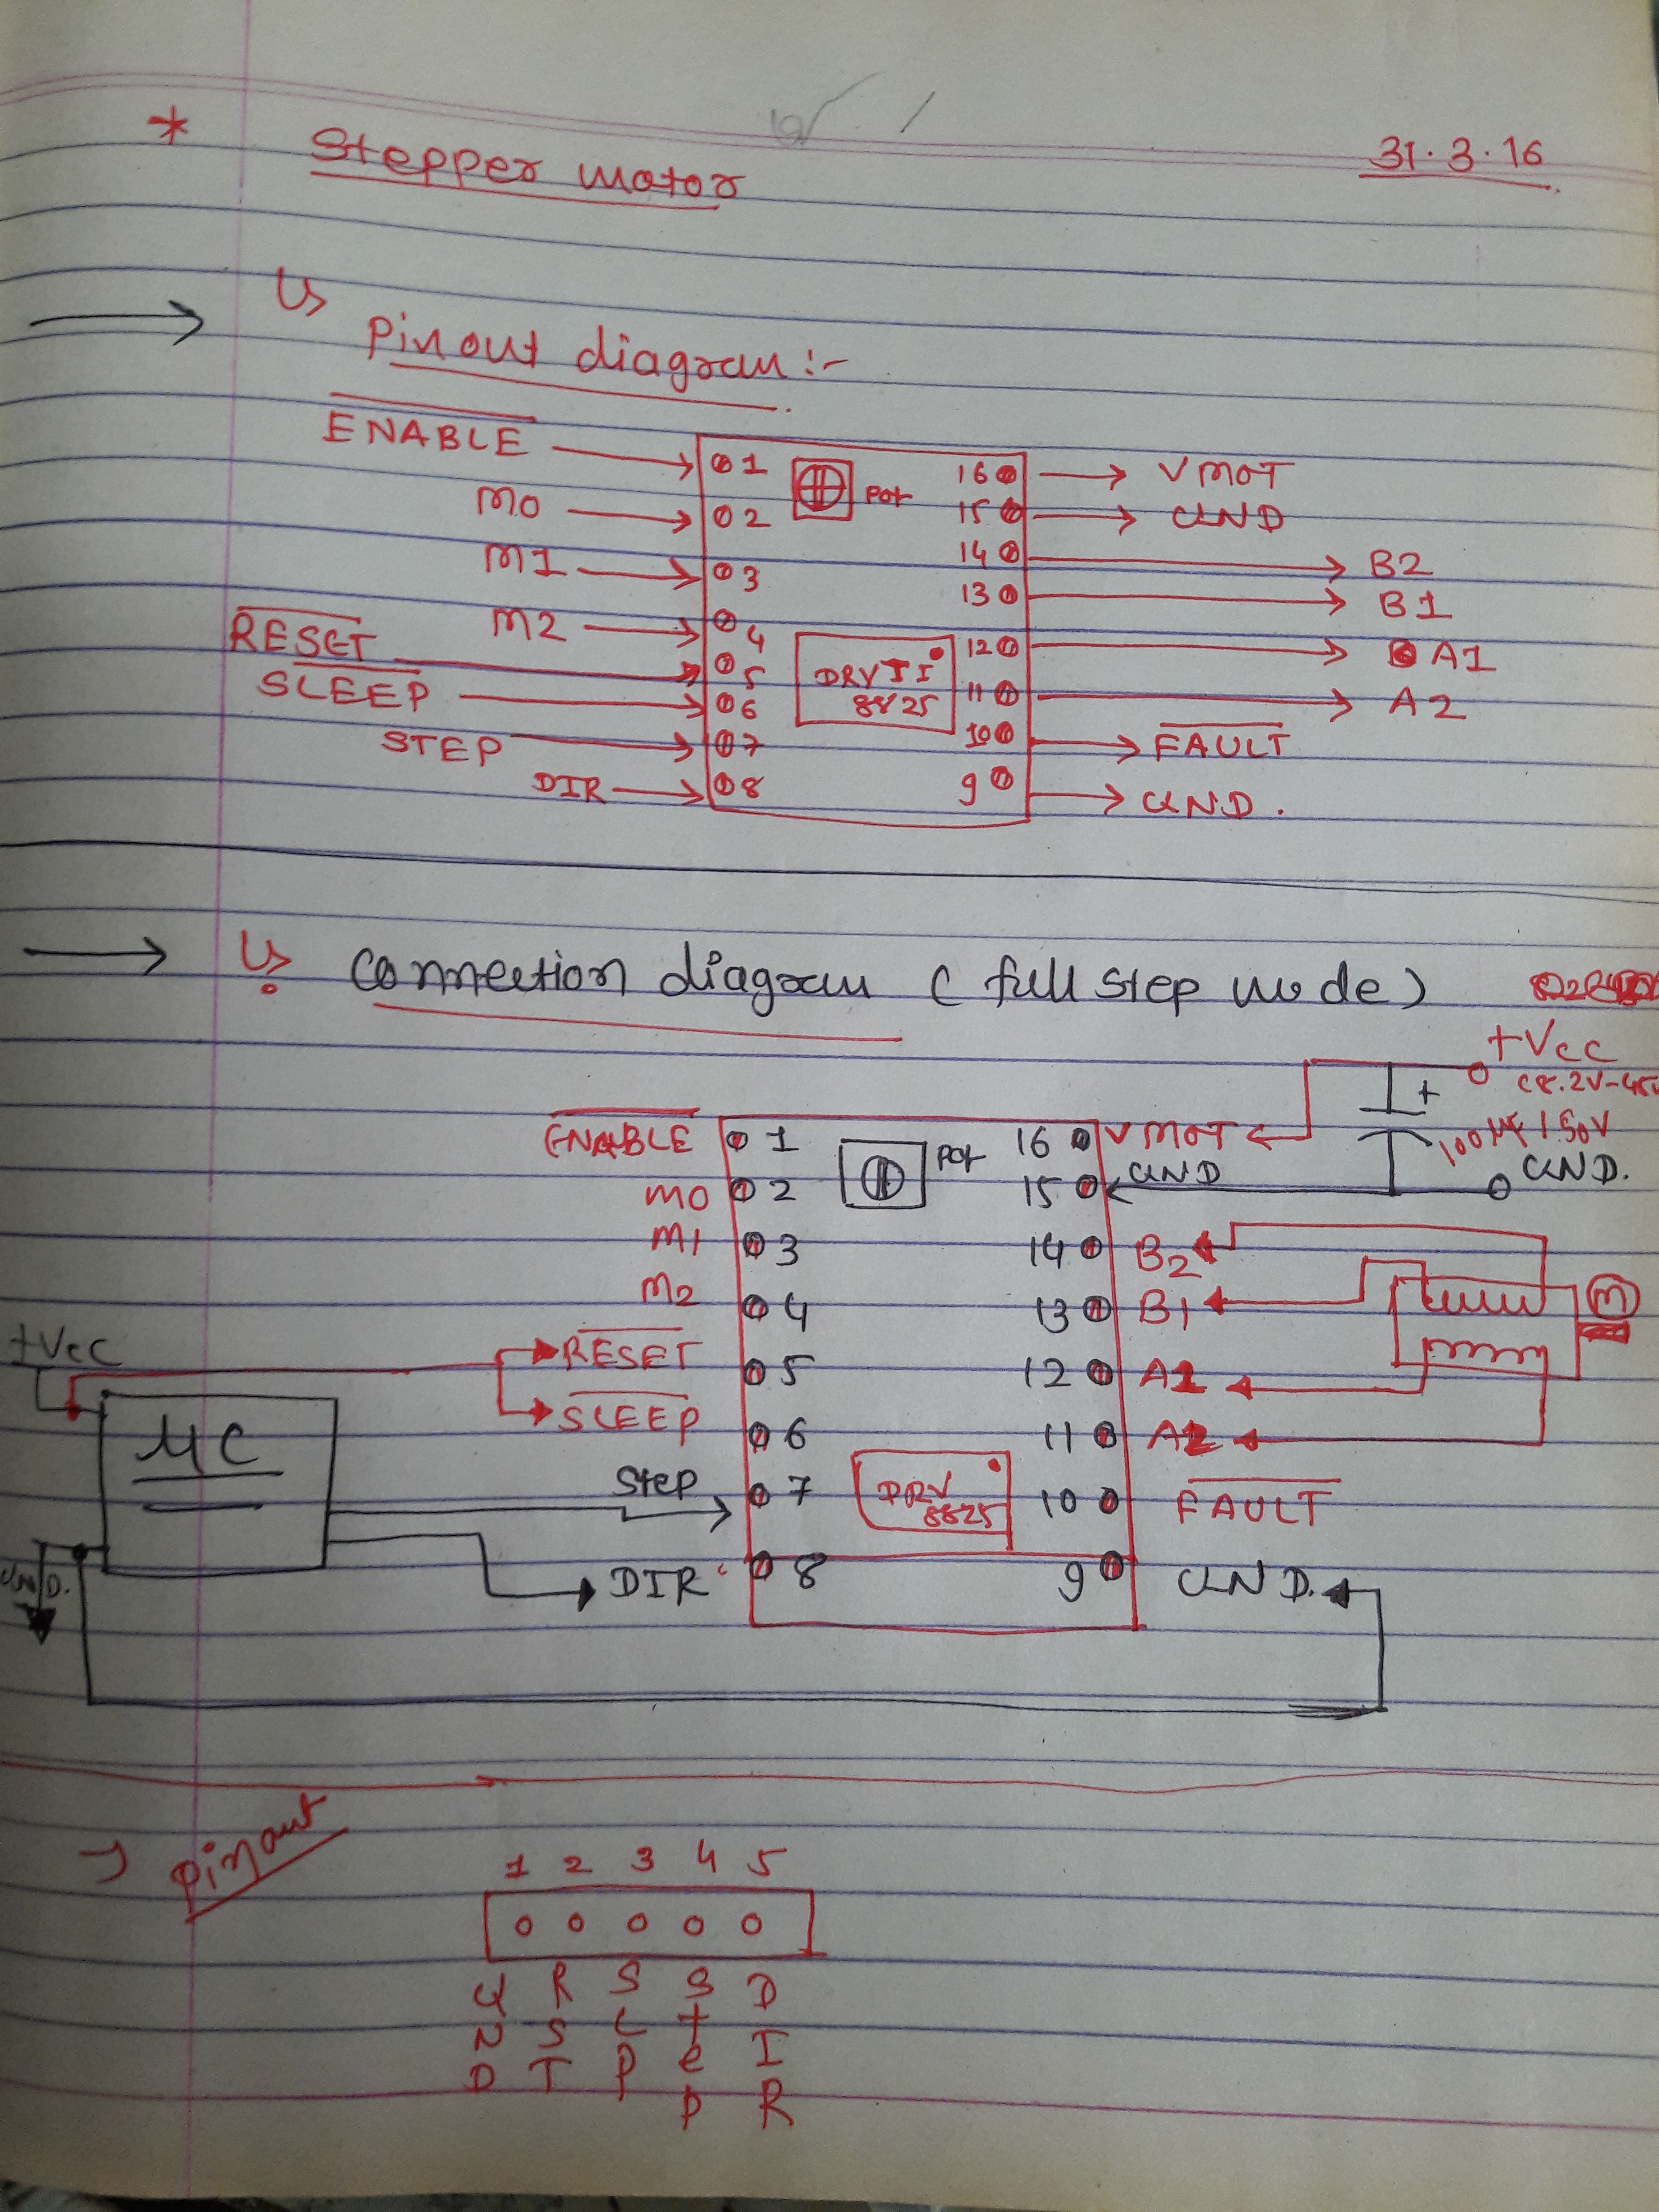 * Stepper motor 31.3.16
Pinout diagram :-
ENABLE 1 POT 16 VMOT
M0 2 15 GND
M1 3 14 B2
M2 4 13 B1
RESET 5 DRV TI 8825 12 A1
SLEEP 6 11 A2
STEP 7 10 FAULT
DIR 8 9 GND.
Connection diagram ( full step mode )
+Vcc
(8.2V-45V
+
100µF / 50V
GND.
ENABLE 1 POT 16 VMOT
M0 2 15 GND
M1 3 14 B2
M2 4 13 B1 M
+Vcc RESET 5 12 A1
SLEEP 6 11 A2
µC Step 7 DRV 8825 10 FAULT
GND. DIR 8 9 GND.
Pinout
1 2 3 4 5
GND RST SLP Step DIR